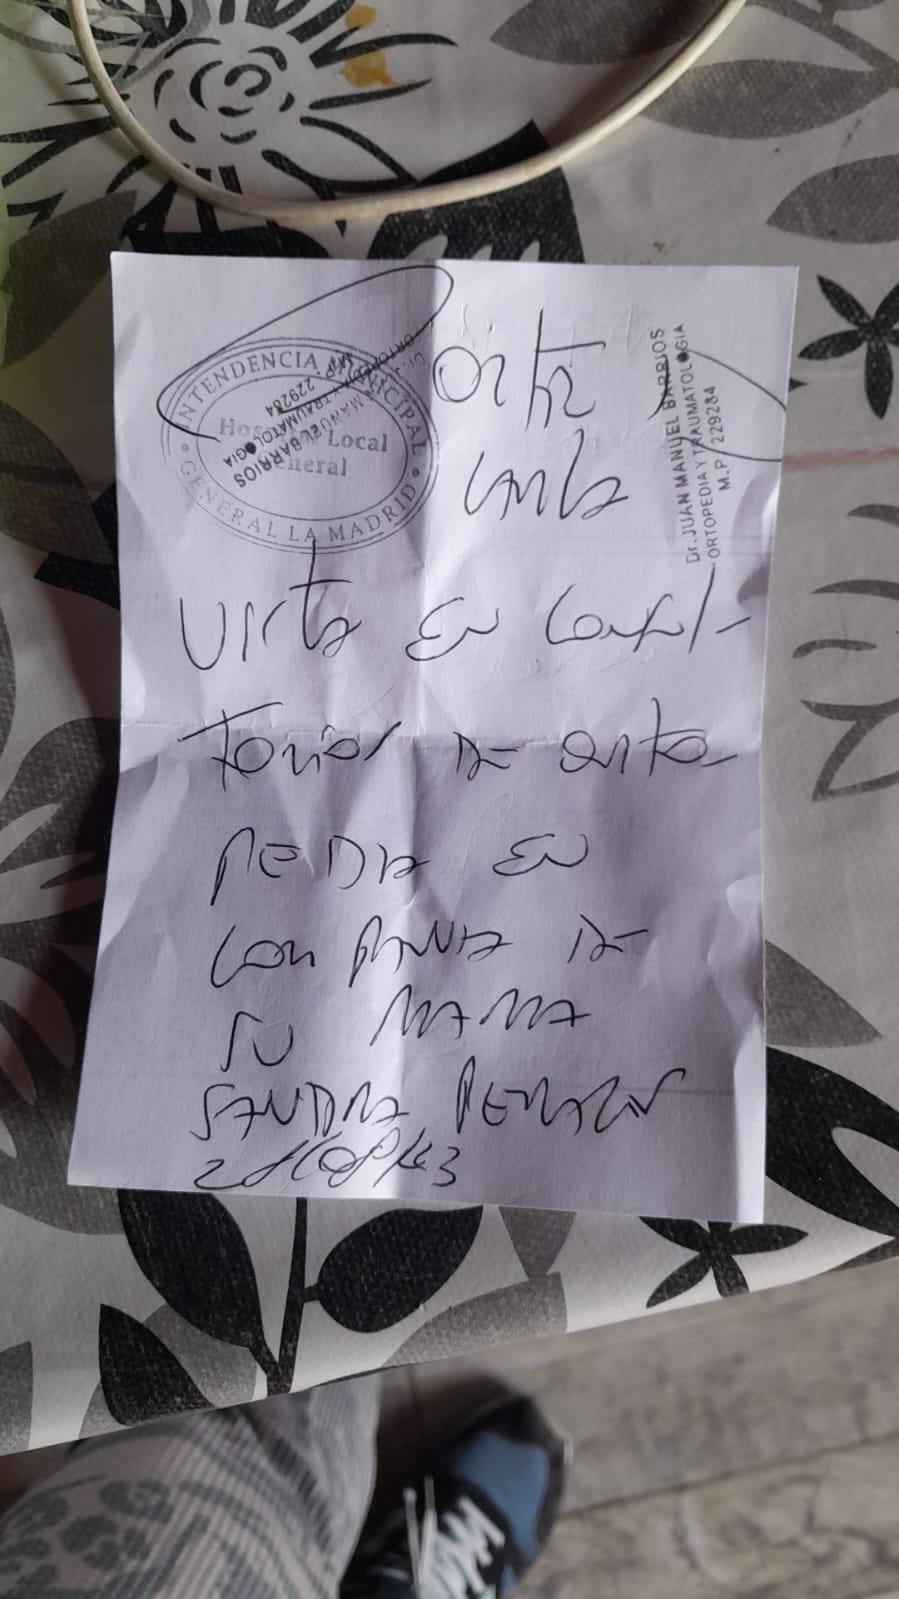 INTENDENCIA MUNICIPAL
Hospital Local
General
GENERAL LA MADRID
MANUEL BARRIOS
ORTOPEDIA Y TRAUMATOLOGIA
M.P. 229284
Ortiz
Carla
Dr. JUAN MANUEL BARRIOS
ORTOPEDIA Y TRAUMATOLOGIA
M.P. 229284
Vista en consul-
torios de orto-
pedia en
compañia de
su mama
Sandra